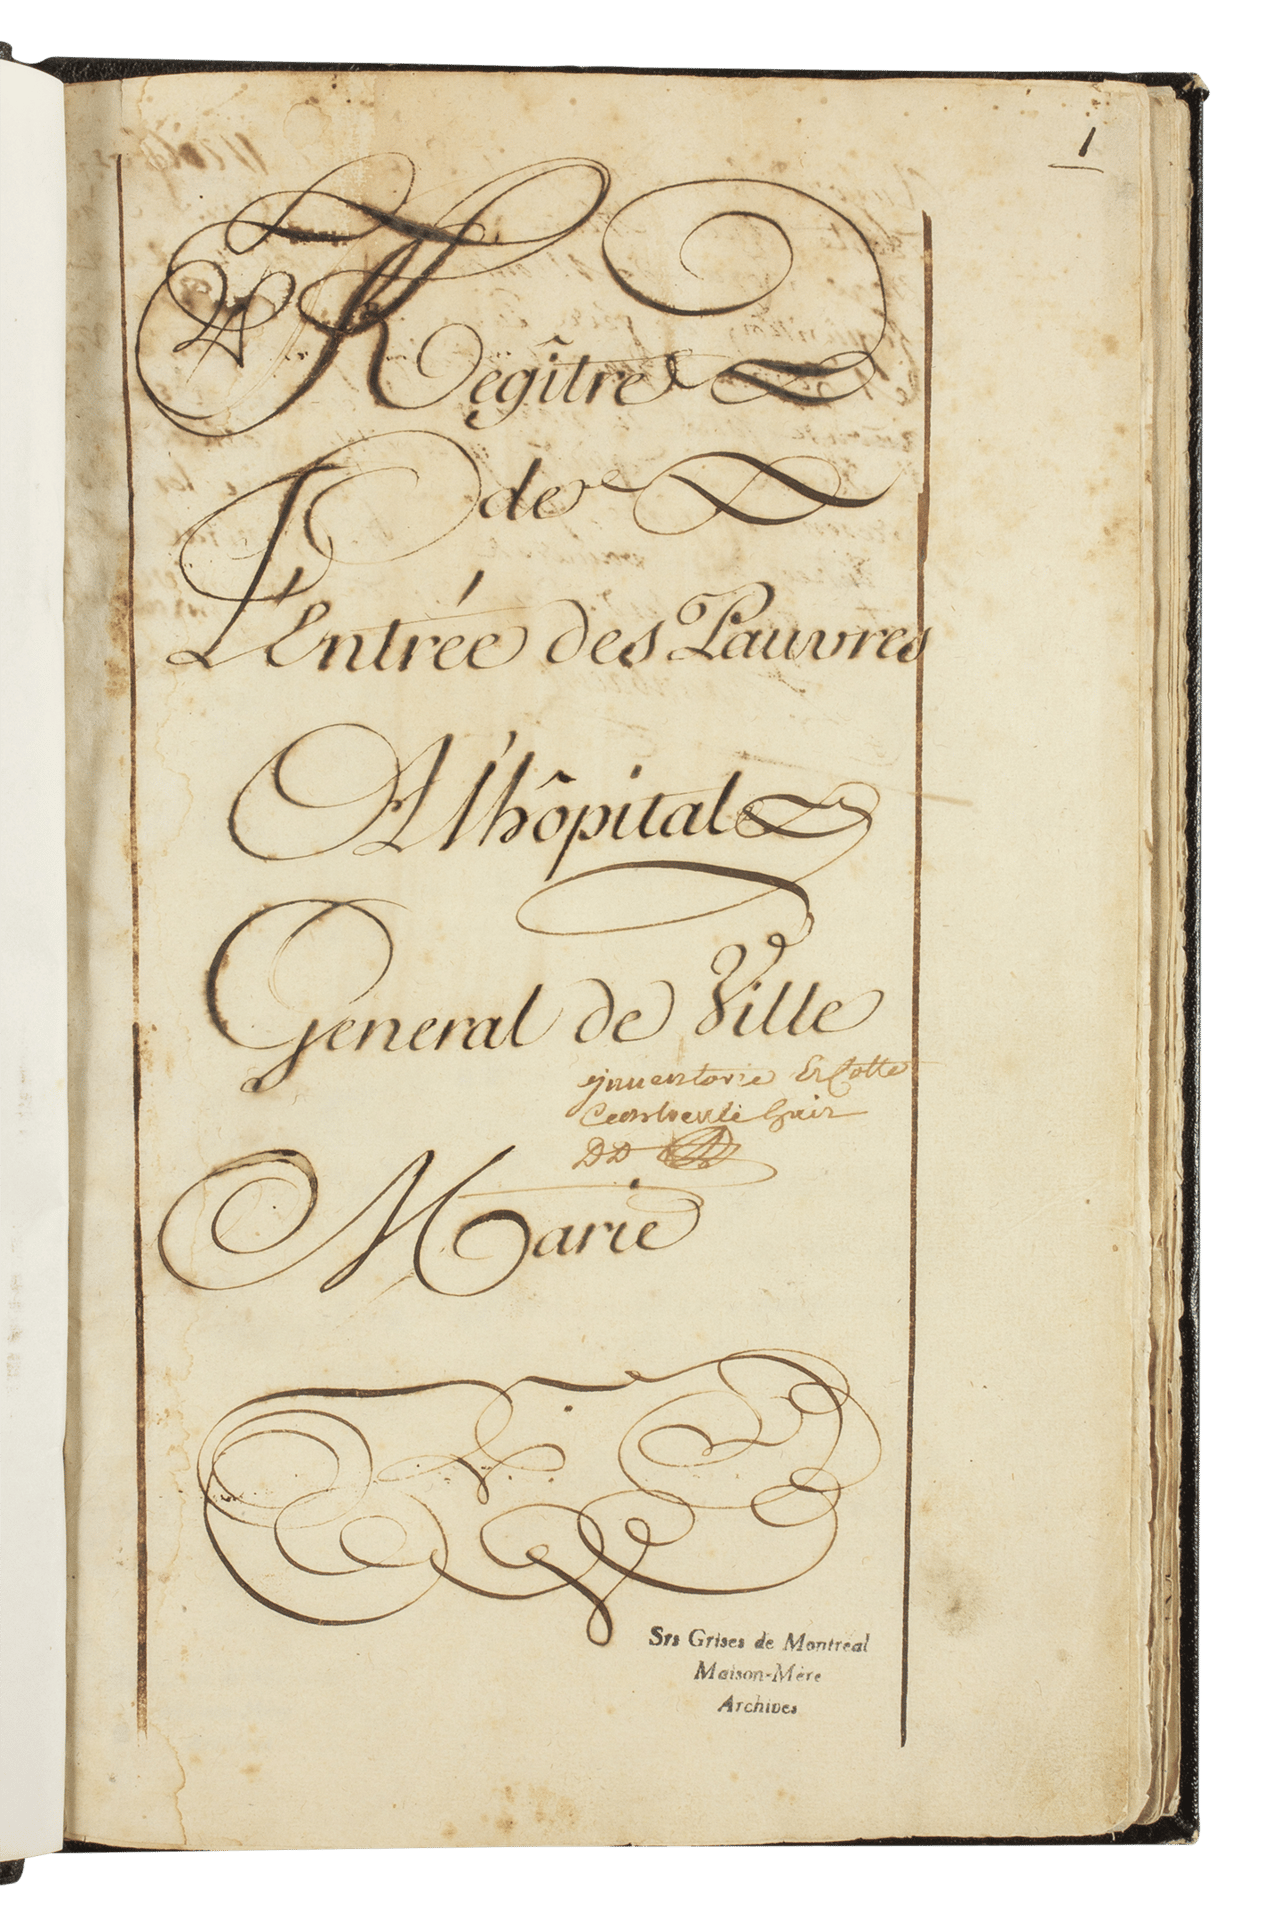 1
Regîtré
de
L'Entrée des Pauvres
A l'hôpital
General de Ville
jnuentorie Et Cotte
DD
Marie
Srs Grises de Montréal
Maison-Mère
Archives